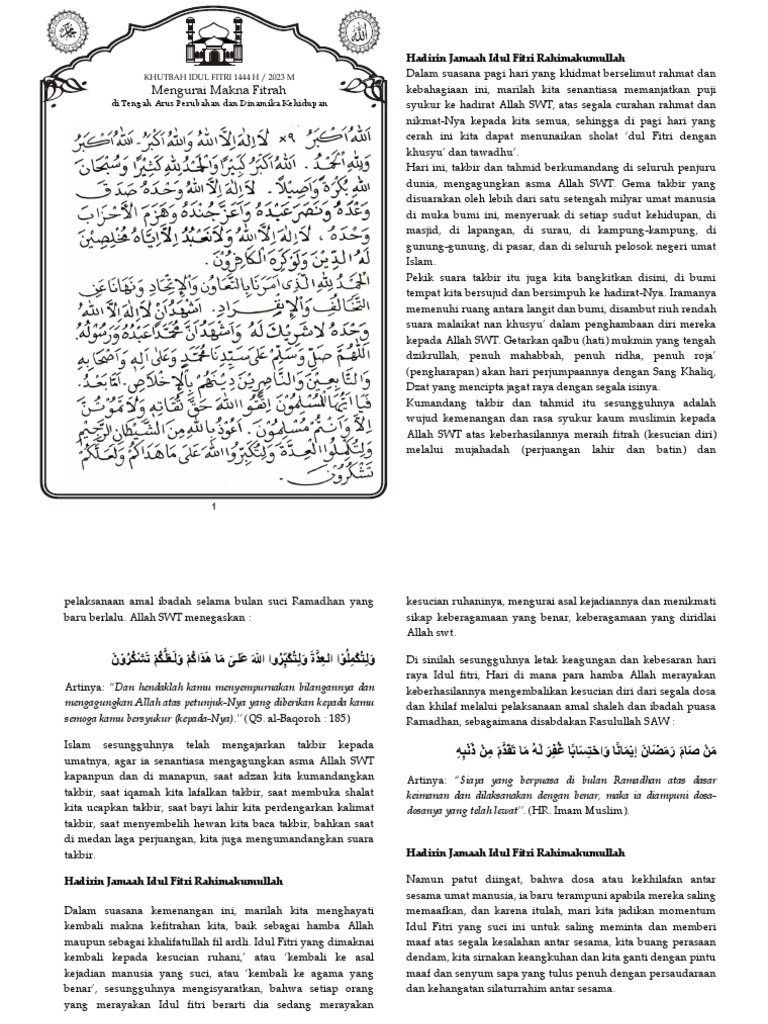 KHUTBAH IDUL FITRI 1444 H / 2023 M
Mengurai Makna Fitrah
di Tengah Arus Perubahan dan Dinamika Kehidupan
اَللهُ اَكْبَرُ ×٩ لَا اِلٰهَ اِلَّا اللهُ وَاللهُ اَكْبَرُ. اَللهُ اَكْبَرُ
وَلِلّٰهِ الْحَمْدُ. اَللهُ اَكْبَرُ كَبِيْرًا وَالْحَمْدُ لِلّٰهِ كَثِيْرًا وَسُبْحَانَ
اللهِ بُكْرَةً وَاَصِيْلًا. لَا اِلٰهَ اِلَّا اللهُ وَحْدَهُ صَدَقَ
وَعْدَهُ وَنَصَرَ عَبْدَهُ وَاَعَزَّ جُنْدَهُ وَهَزَمَ الْاَحْزَابَ
وَحْدَهُ، لَا اِلٰهَ اِلَّا اللهُ وَلَا نَعْبُدُ اِلَّا اِيَّاهُ مُخْلِصِيْنَ
لَهُ الدِّيْنَ وَلَوْ كَرِهَ الْكَافِرُوْنَ.
اَلْحَمْدُ لِلّٰهِ الَّذِى اَمَرَنَا بِالتَّعَاوُنِ وَالْاِتِّحَادِ وَنَهَانَا عَنِ
التَّخَالُفِ وَالْاِنْفِرَادِ. اَشْهَدُ اَنْ لَا اِلٰهَ اِلَّا اللهُ
وَحْدَهُ لَا شَرِيْكَ لَهُ وَاَشْهَدُ اَنَّ مُحَمَّدًا عَبْدُهُ وَرَسُوْلُهُ.
اَللّٰهُمَّ صَلِّ وَسَلِّمْ عَلَى سَيِّدِنَا مُحَمَّدٍ وَعَلَى اٰلِهِ وَاَصْحَابِهِ
وَالتَّابِعِيْنَ وَالنَّاصِرِيْنَ دِيْنَهُمْ بِالْاِخْلَاصِ. اَمَّا بَعْدُ.
فَيَا اَيُّهَا الْمُسْلِمُوْنَ اتَّقُوا اللهَ حَقَّ تُقَاتِهِ وَلَا تَمُوْتُنَّ
اِلَّا وَاَنْتُمْ مُسْلِمُوْنَ. اَعُوْذُ بِاللهِ مِنَ الشَّيْطَانِ الرَّجِيْمِ
وَلِتُكْمِلُوا الْعِدَّةَ وَلِتُكَبِّرُوا اللهَ عَلَى مَا هَدَاكُمْ وَلَعَلَّكُمْ
تَشْكُرُوْنَ.
1
Hadirin Jamaah Idul Fitri Rahimakumullah
Dalam suasana pagi hari yang khidmat berselimut rahmat dan
kebahagiaan ini, marilah kita senantiasa memanjatkan puji
syukur ke hadirat Allah SWT, atas segala curahan rahmat dan
nikmat-Nya kepada kita semua, sehingga di pagi hari yang
cerah ini kita dapat menunaikan sholat ‘dul Fitri dengan
khusyu’ dan tawadhu’.
Hari ini, takbir dan tahmid berkumandang di seluruh penjuru
dunia, mengagungkan asma Allah SWT. Gema takbir yang
disuarakan oleh lebih dari satu setengah milyar umat manusia
di muka bumi ini, menyeruak di setiap sudut kehidupan, di
masjid, di lapangan, di surau, di kampung-kampung, di
gunung-gunung, di pasar, dan di seluruh pelosok negeri umat
Islam.
Pekik suara takbir itu juga kita bangkitkan disini, di bumi
tempat kita bersujud dan bersimpuh ke hadirat-Nya. Iramanya
memenuhi ruang antara langit dan bumi, disambut riuh rendah
suara malaikat nan khusyu’ dalam penghambaan diri mereka
kepada Allah SWT. Getarkan qalbu (hati) mukmin yang tengah
dzikrullah, penuh mahabbah, penuh ridha, penuh roja’
(pengharapan) akan hari perjumpaannya dengan Sang Khaliq,
Dzat yang mencipta jagat raya dengan segala isinya.
Kumandang takbir dan tahmid itu sesungguhnya adalah
wujud kemenangan dan rasa syukur kaum muslimin kepada
Allah SWT atas keberhasilannya meraih fitrah (kesucian diri)
melalui mujahadah (perjuangan lahir dan batin) dan
pelaksanaan amal ibadah selama bulan suci Ramadhan yang
baru berlalu. Allah SWT menegaskan :
وَلِتُكْمِلُوا الْعِدَّةَ وَلِتُكَبِّرُوا اللهَ عَلىَ مَا هَدَاكُمْ وَلَعَلَّكُمْ تَشْكُرُوْنَ
Artinya: “Dan hendaklah kamu menyempurnakan bilangannya dan
mengagungkan Allah atas petunjuk-Nya yang diberikan kepada kamu
semoga kamu bersyukur (kepada-Nya).” (QS. al-Baqoroh : 185)
Islam sesungguhnya telah mengajarkan takbir kepada
umatnya, agar ia senantiasa mengagungkan asma Allah SWT
kapanpun dan di manapun, saat adzan kita kumandangkan
takbir, saat iqamah kita lafalkan takbir, saat membuka shalat
kita ucapkan takbir, saat bayi lahir kita perdengarkan kalimat
takbir, saat menyembelih hewan kita baca takbir, bahkan saat
di medan laga perjuangan, kita juga mengumandangkan suara
takbir.
Hadirin Jamaah Idul Fitri Rahimakumullah
Dalam suasana kemenangan ini, marilah kita menghayati
kembali makna kefitrahan kita, baik sebagai hamba Allah
maupun sebagai khalifatullah fil ardli. Idul Fitri yang dimaknai
kembali kepada kesucian ruhani,’ atau ‘kembali ke asal
kejadian manusia yang suci, atau ‘kembali ke agama yang
benar’, sesungguhnya mengisyaratkan, bahwa setiap orang
yang merayakan Idul fitri berarti dia sedang merayakan
kesucian ruhaninya, mengurai asal kejadiannya dan menikmati
sikap keberagamaan yang benar, keberagamaan yang diridlai
Allah swt.
Di sinilah sesungguhnya letak keagungan dan kebesaran hari
raya Idul fitri, Hari di mana para hamba Allah merayakan
keberhasilannya mengembalikan kesucian diri dari segala dosa
dan khilaf melalui pelaksanaan amal shaleh dan ibadah puasa
Ramadhan, sebagaimana disabdakan Rasulullah SAW :
مَنْ صَامَ رَمَضَانَ إِيْمَانًا وَاحْتِسَابًا غُفِرَ لَهُ مَا تَقَدَّمَ مِنْ ذَنْبِهِ
Artinya: “Siapa yang berpuasa di bulan Ramadhan atas dasar
keimanan dan dilaksanakan dengan benar, maka ia diampuni dosa-
dosanya yang telah lewat”. (HR. Imam Muslim).
Hadirin Jamaah Idul Fitri Rahimakumullah
Namun patut diingat, bahwa dosa atau kekhilafan antar
sesama umat manusia, ia baru terampuni apabila mereka saling
memaafkan, dan karena itulah, mari kita jadikan momentum
Idul Fitri yang suci ini untuk saling meminta dan memberi
maaf atas segala kesalahan antar sesama, kita buang perasaan
dendam, kita sirnakan keangkuhan dan kita ganti dengan pintu
maaf dan senyum sapa yang tulus penuh dengan persaudaraan
dan kehangatan silaturrahim antar sesama.